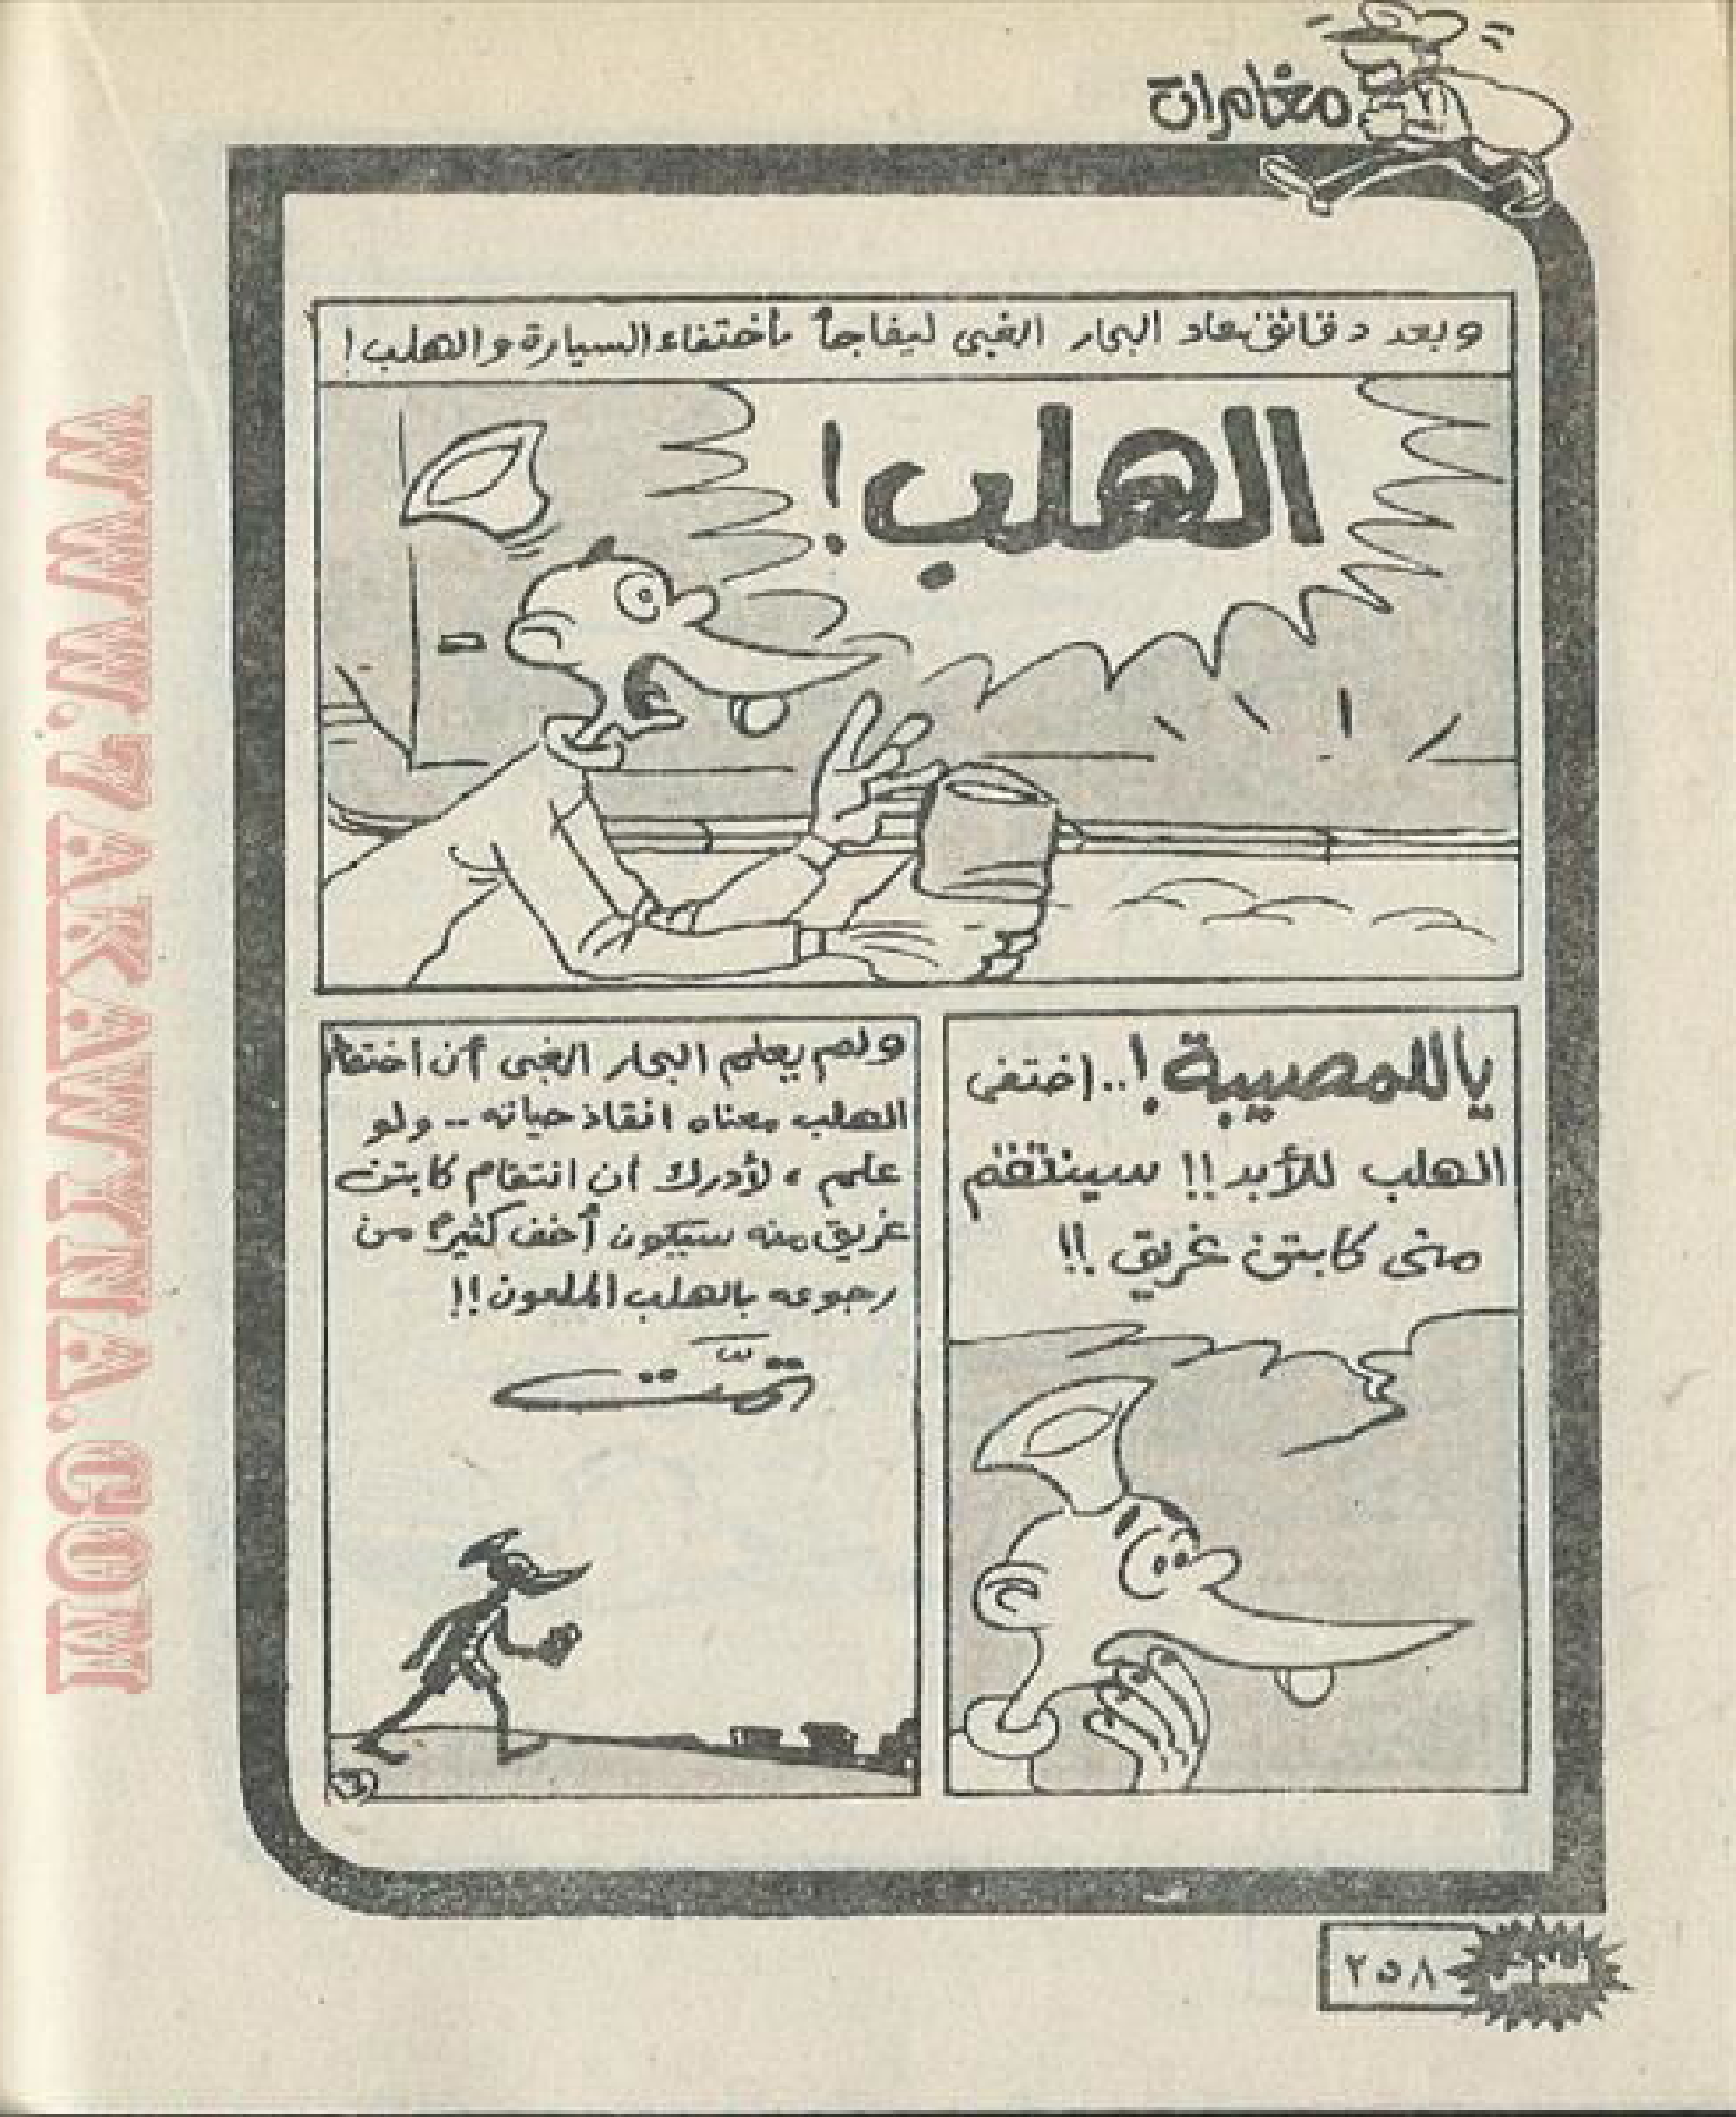 مغامرات
وبعد دقائق عاد البحار الغبى ليفاجأ بأختفاء السيارة والهلب !
الهلب !
ياللمصيبة !.. اختفى
الهلب للأبد !! سينتقم
منى كابتن غريق !!
ولم يعلم البحار الغبى أن اختفاء
الهلب معناه انقاذ حياته .. ولو
علم ، لأدرك أن انتقام كابتن
غريق منه سيكون أخف كثيراً من
رجوعه بالهلب الملعون !!
تمّت
٢٥٨
WWW.7AKAWITNA.COM